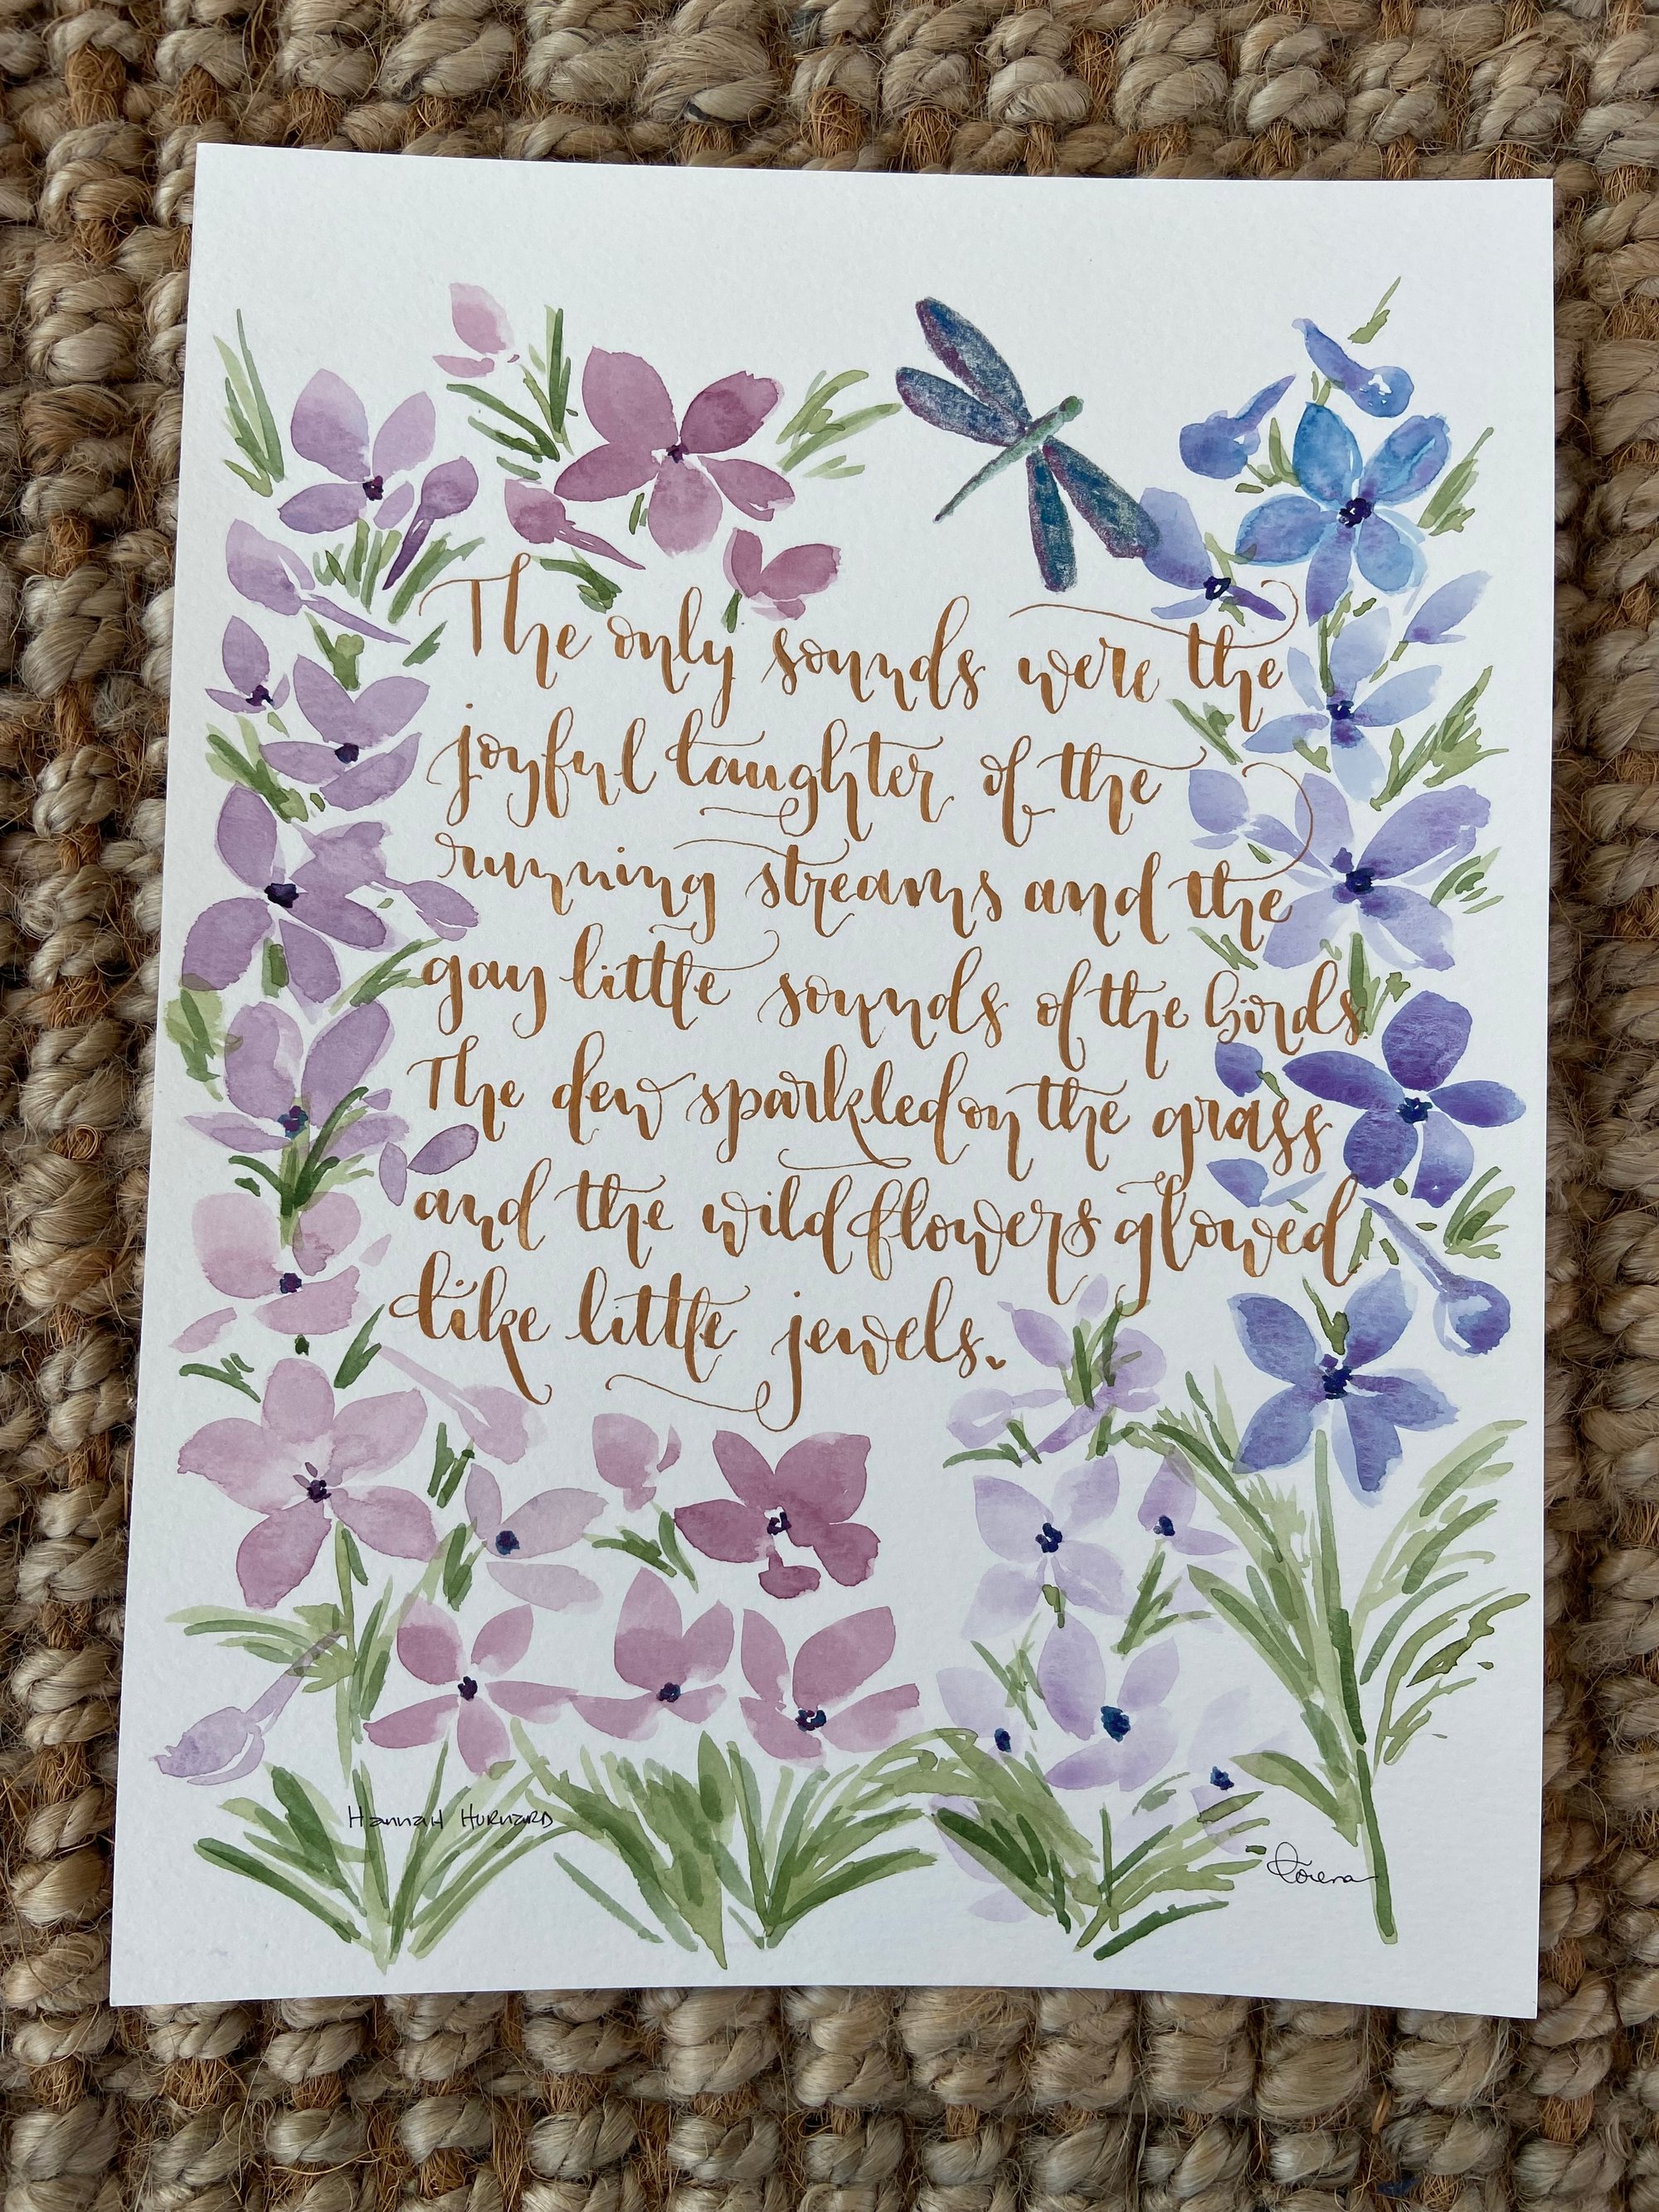 The only sounds were the
joyful laughter of the
running streams and the
gay little sounds of the birds
The dew sparkled on the grass
and the wildflowers glowed
like little jewels.
Hannah Hurnard
Lorena